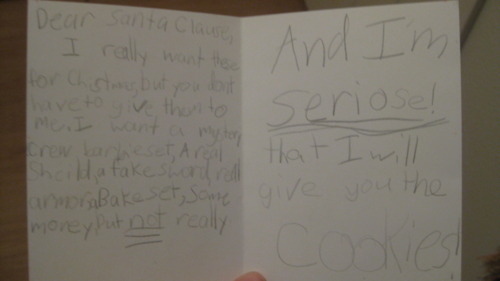 Dear Santa Clause,
I really want these
for Chstmas, but you dont
have to give them to
me. I want a
crew set, A real
Sheild, a fake sword, reall
armor, a Bake set, Some
money, but not really
And I'm
seriose!
that I will
give you the
Cookies!